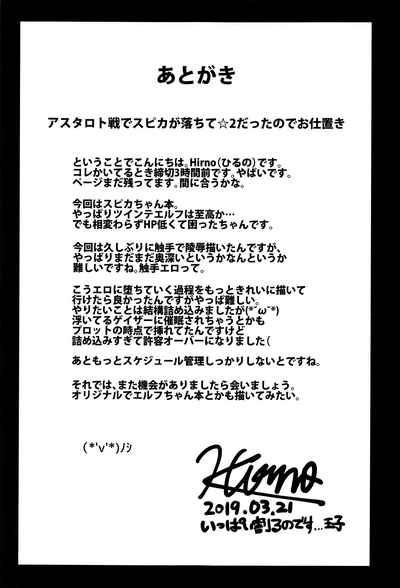 あとがき
アスタロト戦でスピカが落ちて☆2だったのでお仕置き
ということでこんにちは。Hirno(ひるの)です。
コレかいてるとき締切3時間前です。やばいです。
ページまだ残ってます。間に合うかな。
今回はスピカちゃん本。
やっぱりツインテエルフは至高か…
でも相変わらずHP低くて困ったちゃんです。
今回は久しぶりに触手で陵辱描いたんですが、
やっぱりまだまだ奥深いというかなんというか
難しいですね。触手エロって。
こうエロに堕ちていく過程をもっときれいに描いて
行けたら良かったんですがやっぱ難しい。
やりたいことは結構詰め込みましたが(*˘ω˘*)
浮いてるゲイザーに催眠されちゃうとかも
プロットの時点で挿れてたんですけど
詰め込みすぎて許容オーバーになりました(
あともっとスケジュール管理しっかりしないとですね。
それでは、また機会がありましたら会いましょう。
オリジナルでエルフちゃん本とかも描いてみたい。
(*'v'*)ﾉｼ
Hirno
2019.03.21